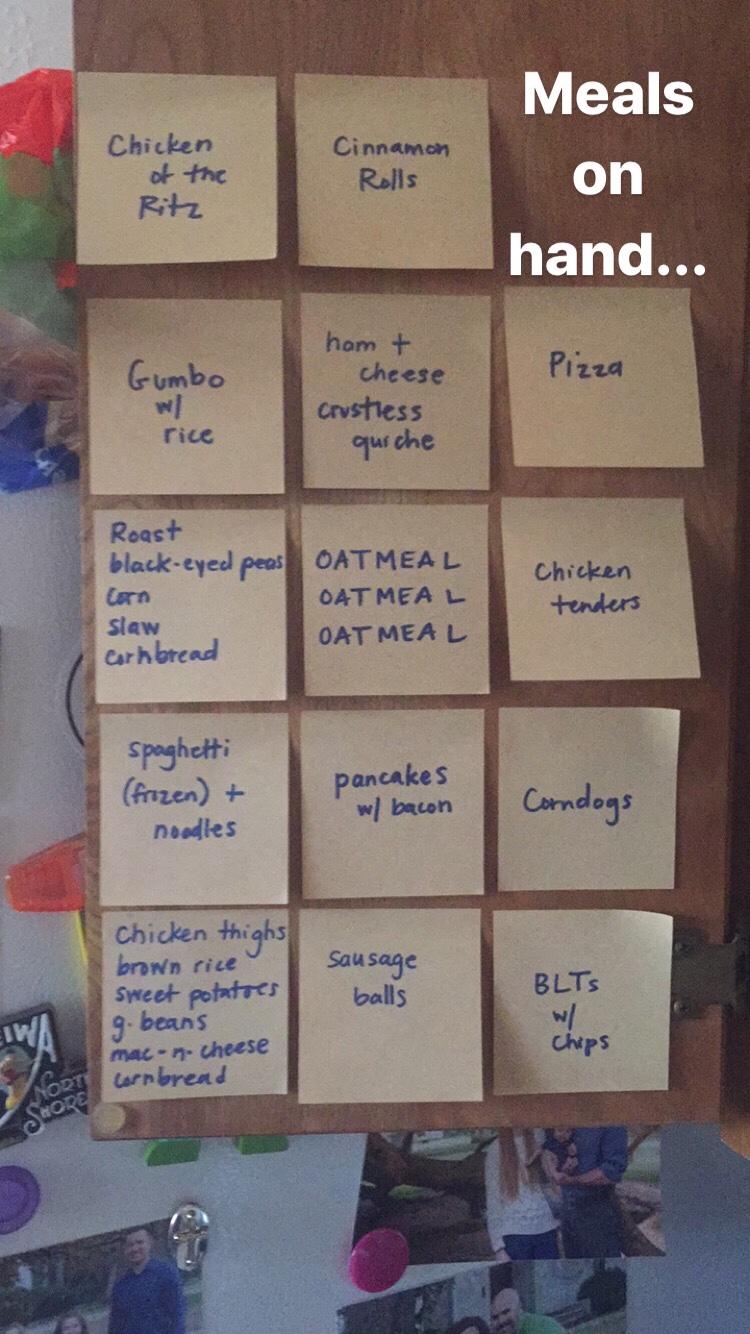 Meals
on
hand...
Chicken
of the
Ritz
Cinnamon
Rolls
Gumbo
w/
rice
ham +
cheese
crustless
quiche
Pizza
Roast
black-eyed peas
Corn
Slaw
Cornbread
OATMEAL
OATMEAL
OATMEAL
Chicken
tenders
spaghetti
(frozen) +
noodles
pancakes
w/ bacon
Corndogs
Chicken thighs
brown rice
sweet potatoes
g. beans
mac-n-cheese
cornbread
Sausage
balls
BLTs
w/
Chips
NORTH
SHORE